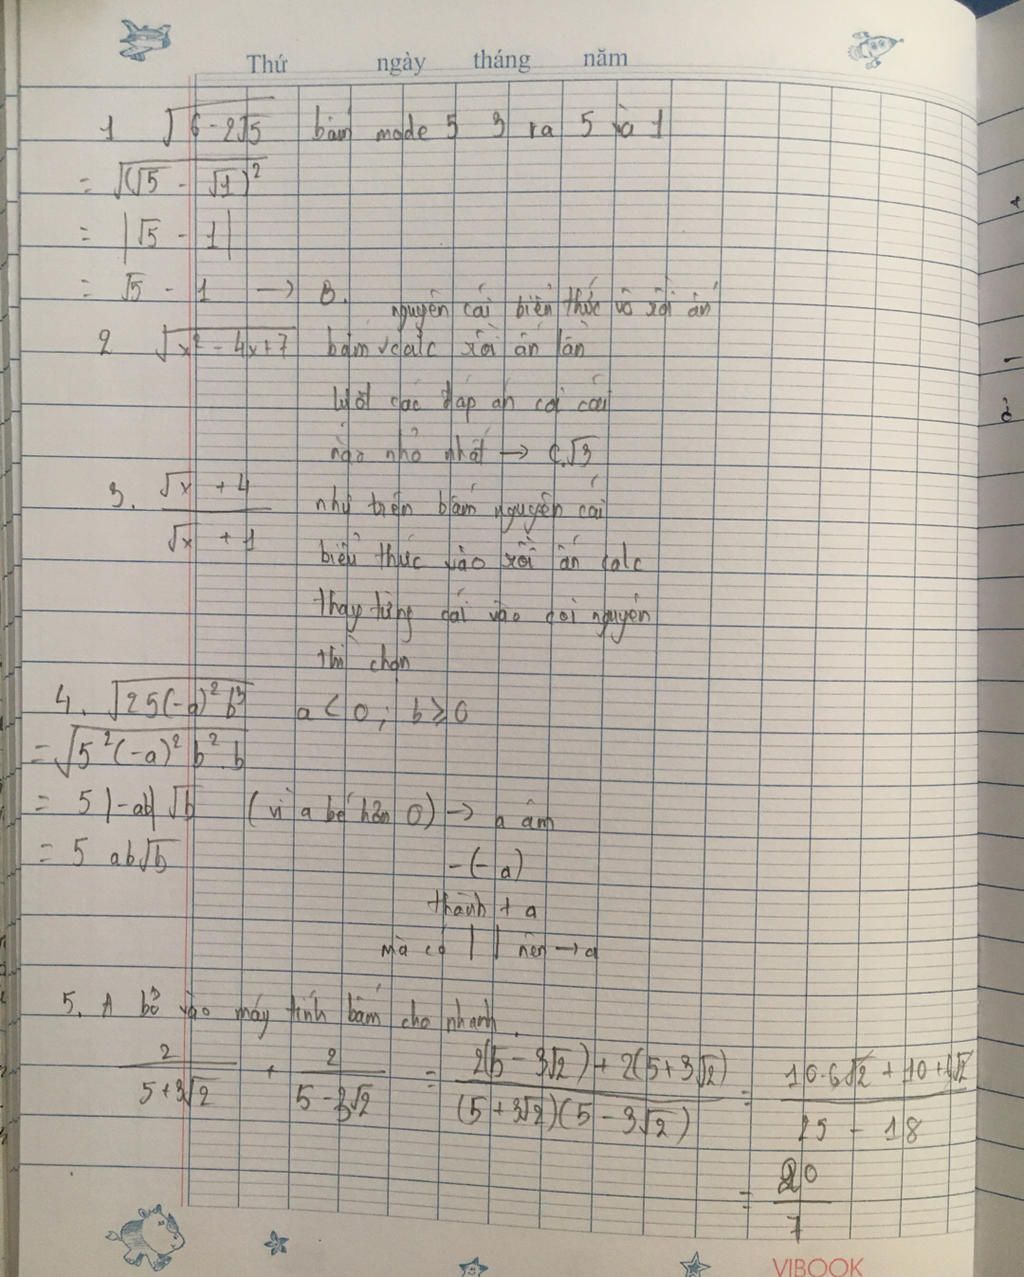 Thứ ngày tháng năm
1 √(6 - 2√5) bấm mode 5 3 ra 5 và 1
= √((√5 - √1)²)
= |√5 - 1|
= √5 - 1 → B.
nguyên cái biểu thức vô rồi ấn
2 √(x² - 4x + 7) bấm calc rồi ấn lần
lượt các đáp án coi cái
nào nhỏ nhất → C.√3
3. (√x + 4)/(√x + 1) như trên bấm nguyên cái
biểu thức vào rồi ấn calc
thay từng cái vào coi nguyên
thì chọn
4. √(25(-a)²b³) a < 0; b ≥ 0
= √(5²(-a)² b².b)
= 5|-ab|√b (vì a bé hơn 0) → a âm
= 5 ab√b -(-a)
thành + a
mà có | | nên → a
5. A bỏ vào máy tính bấm cho nhanh.
2/(5+3√2) + 2/(5-3√2) = (2(5-3√2)+2(5+3√2))/((5+3√2)(5-3√2)) = (10-6√2+10+6√2)/(25-18)
= 20/7
VIBOOK